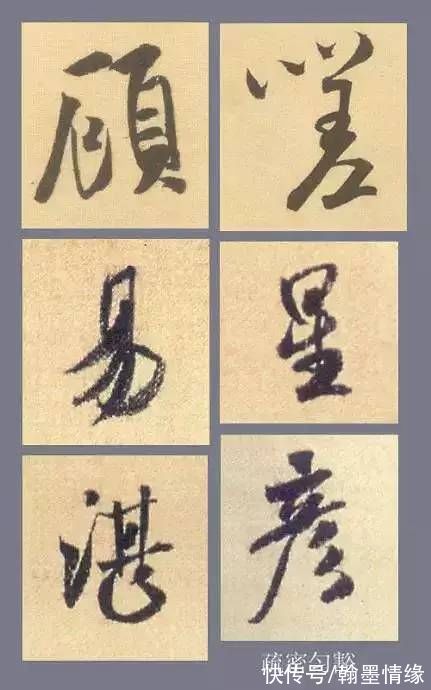 顧 嗟
易 星
湛 彦
疏密匀
快传号/翰墨情缘